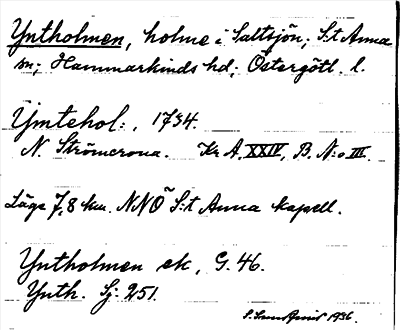 Yntholmen, holme i Saltsjön, S:t Anna
sn; Hammarkinds hd; Östergötl. l.
Ymtehol:, 1734.
N. Strömcrona. Kr A, XXIV, B. N:o III.
Läge 7,8 km. NNO S:t Anna kapell.
Yntholmen ek, G. 46.
Ynth. Sj: 251.
1936.